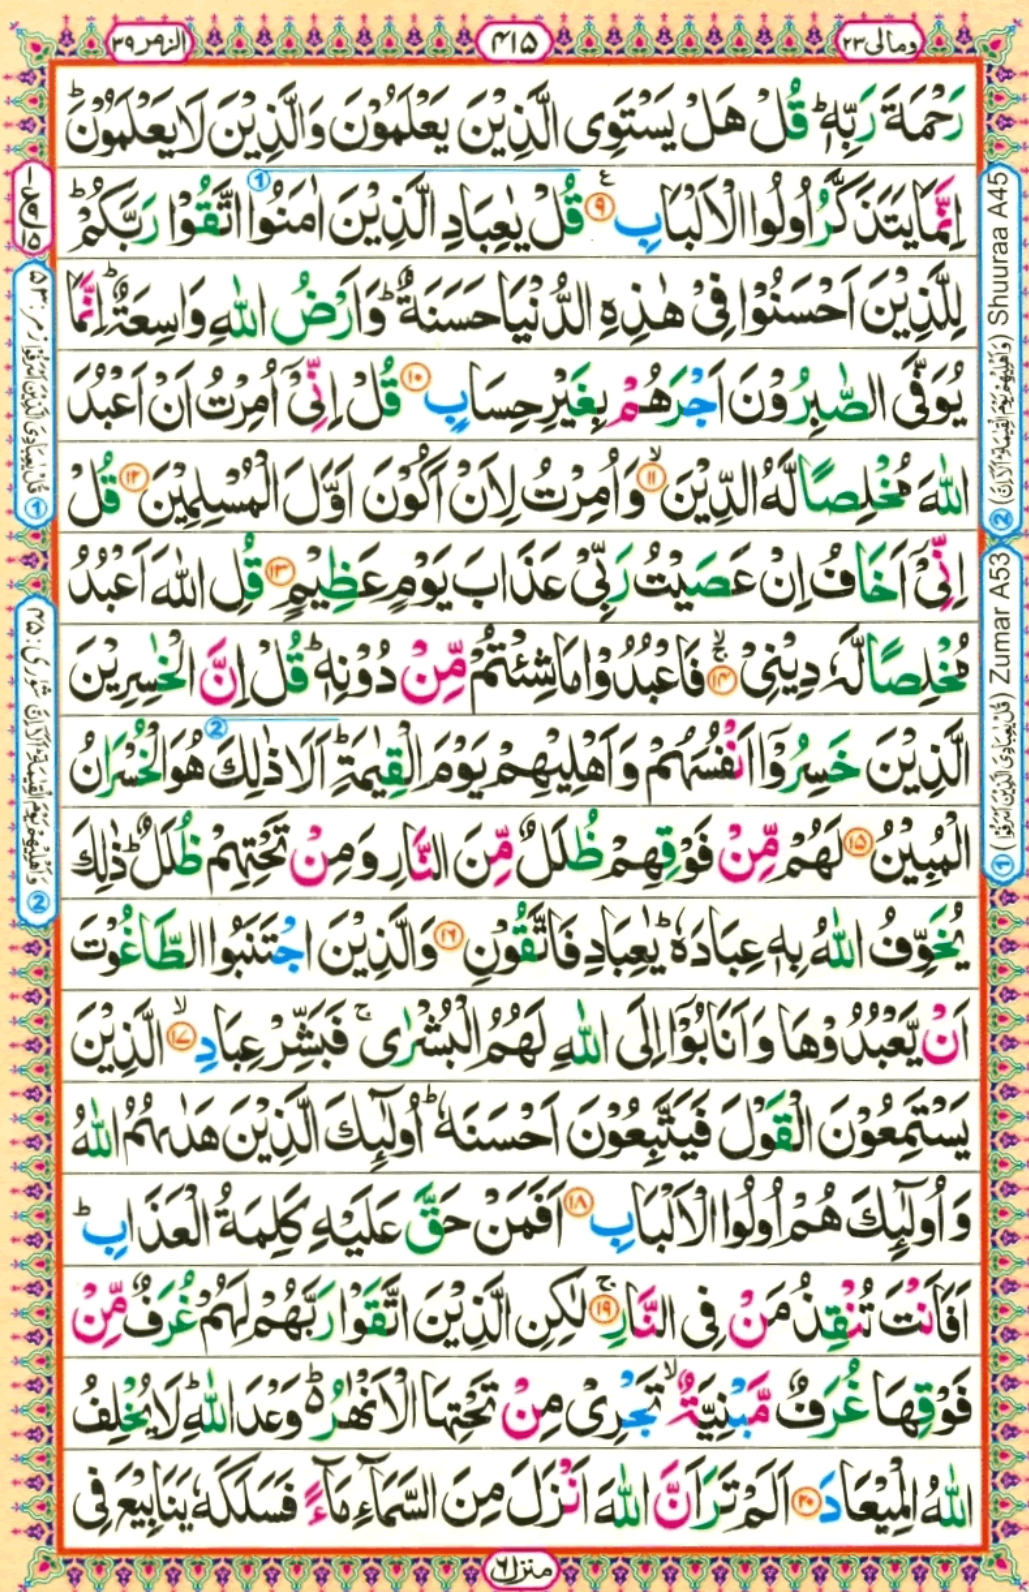 الزمر ٣٩
٤١٥
ومالی ٢٣
رَحْمَةَ رَبِّهٖ ؕ قُلْ هَلْ يَسْتَوِى الَّذِيْنَ يَعْلَمُوْنَ وَالَّذِيْنَ لَا يَعْلَمُوْنَ ؕ
اِنَّمَا يَتَذَكَّرُ اُولُوا الْاَلْبَابِ ۹ قُلْ يٰعِبَادِ الَّذِيْنَ اٰمَنُوا اتَّقُوْا رَبَّكُمْ ؕ
لِلَّذِيْنَ اَحْسَنُوْا فِىْ هٰذِهِ الدُّنْيَا حَسَنَةٌ ؕ وَاَرْضُ اللّٰهِ وَاسِعَةٌ ؕ اِنَّمَا
يُوَفَّى الصّٰبِرُوْنَ اَجْرَهُمْ بِغَيْرِ حِسَابٍ ۱۰ قُلْ اِنِّىْۤ اُمِرْتُ اَنْ اَعْبُدَ
اللّٰهَ مُخْلِصًا لَّهُ الدِّيْنَ ۙ ۱۱ وَاُمِرْتُ لِاَنْ اَكُوْنَ اَوَّلَ الْمُسْلِمِيْنَ ۱۲ قُلْ
اِنِّىْۤ اَخَافُ اِنْ عَصَيْتُ رَبِّىْ عَذَابَ يَوْمٍ عَظِيْمٍ ۱۳ قُلِ اللّٰهَ اَعْبُدُ
مُخْلِصًا لَّهٗ دِيْنِىْ ۙ ۱۴ فَاعْبُدُوْا مَا شِئْتُمْ مِّنْ دُوْنِهٖ ؕ قُلْ اِنَّ الْخٰسِرِيْنَ
الَّذِيْنَ خَسِرُوْۤا اَنْفُسَهُمْ وَاَهْلِيْهِمْ يَوْمَ الْقِيٰمَةِ ؕ اَلَا ذٰلِكَ هُوَ الْخُسْرَانُ
الْمُبِيْنُ ۱۵ لَهُمْ مِّنْ فَوْقِهِمْ ظُلَلٌ مِّنَ النَّارِ وَمِنْ تَحْتِهِمْ ظُلَلٌ ؕ ذٰلِكَ
يُخَوِّفُ اللّٰهُ بِهٖ عِبَادَهٗ ؕ يٰعِبَادِ فَاتَّقُوْنِ ۱۶ وَالَّذِيْنَ اجْتَنَبُوا الطَّاغُوْتَ
اَنْ يَّعْبُدُوْهَا وَاَنَابُوْۤا اِلَى اللّٰهِ لَهُمُ الْبُشْرٰى ۚ فَبَشِّرْ عِبَادِ ۙ ۱۷ الَّذِيْنَ
يَسْتَمِعُوْنَ الْقَوْلَ فَيَتَّبِعُوْنَ اَحْسَنَهٗ ؕ اُولٰٓئِكَ الَّذِيْنَ هَدٰٮهُمُ اللّٰهُ
وَاُولٰٓئِكَ هُمْ اُولُوا الْاَلْبَابِ ۱۸ اَفَمَنْ حَقَّ عَلَيْهِ كَلِمَةُ الْعَذَابِ ؕ
اَفَاَنْتَ تُنْقِذُ مَنْ فِى النَّارِ ۚ ۱۹ لٰكِنِ الَّذِيْنَ اتَّقَوْا رَبَّهُمْ لَهُمْ غُرَفٌ مِّنْ
فَوْقِهَا غُرَفٌ مَّبْنِيَّةٌ ۙ تَجْرِىْ مِنْ تَحْتِهَا الْاَنْهٰرُ ؕ وَعْدَ اللّٰهِ ؕ لَا يُخْلِفُ
اللّٰهُ الْمِيْعَادَ ۲۰ اَلَمْ تَرَ اَنَّ اللّٰهَ اَنْزَلَ مِنَ السَّمَآءِ مَآءً فَسَلَكَهٗ يَنَابِيْعَ فِى
منزل ٦
① Zumar A53 (قُلْ يٰعِبَادِىَ الَّذِيْنَ اَسْرَفُوْا)
② Shuuraa A45 (وَاَهْلِيْهِمْ يَوْمَ الْقِيٰمَةِ اَلَاۤ اِنَّ)
① قُلْ يٰعِبَادِىَ الَّذِيْنَ اَسْرَفُوْا زمر : ۵۳
② وَاَهْلِيْهِمْ يَوْمَ الْقِيٰمَةِ اَلَاۤ اِنَّ شوریٰ : ۴۵